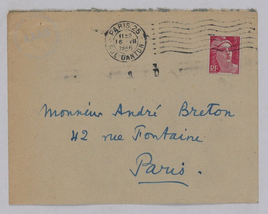 PARIS 25
RUE DANTON
RF
Monsieur André Breton
42 rue Fontaine
Paris.